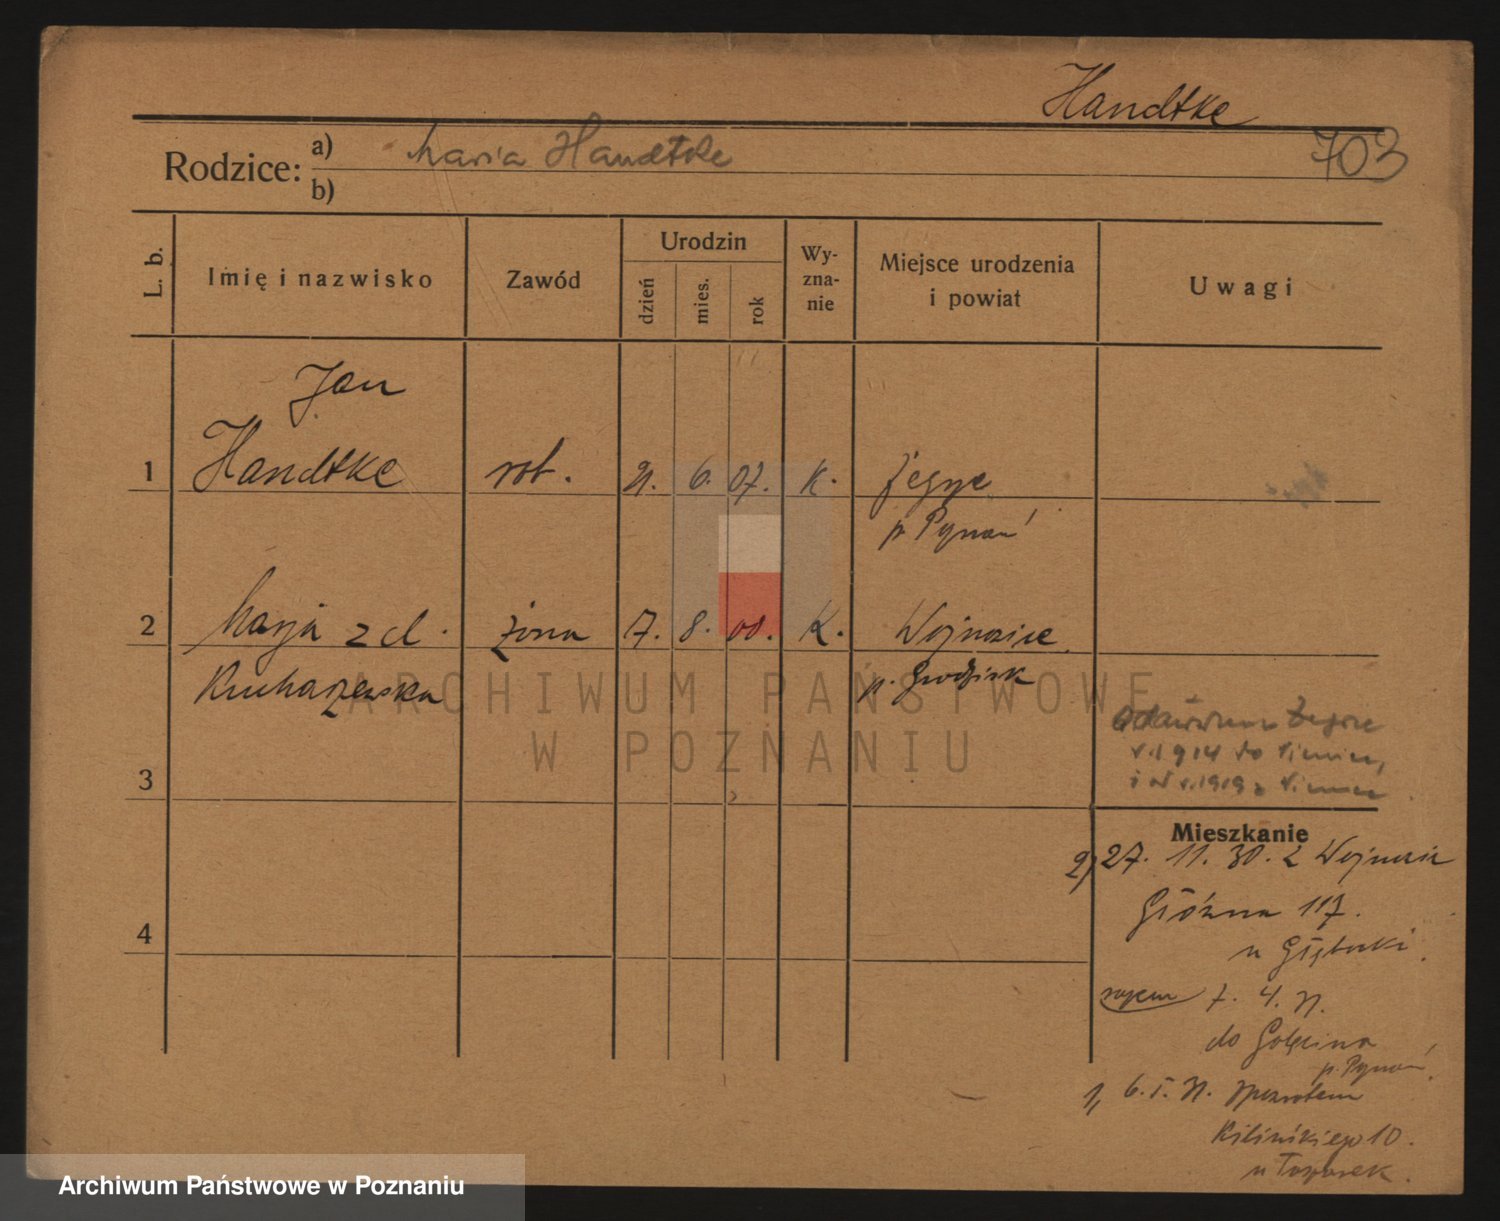 Handtke
703
Rodzice: a) Maria Handtke
b)
L. b. Imię i nazwisko Zawód Urodzin dzień mies. rok Wy-zna-nie Miejsce urodzenia i powiat Uwagi
Jan
1 Handtke rob. 21. 6. 07. K. Żegrze
p. Poznań
2 Marja z d. żona 7. 8. 00. K. Wojnowice
Kucharzewska p. Grodzisk
3
r. 1914 do Niemiec,
i od r. 1919 z Niemiec
4
Mieszkanie
2) 27. 11. 30. z Wojnowic
Główna 117.
u
razem 7. 4. 31.
do Golęcina
p. Poznań.
1, 6. I. 31. z powrotem
Kilińskiego 10.
u
ARCHIWUM PAŃSTWOWE
W POZNANIU
Archiwum Państwowe w Poznaniu